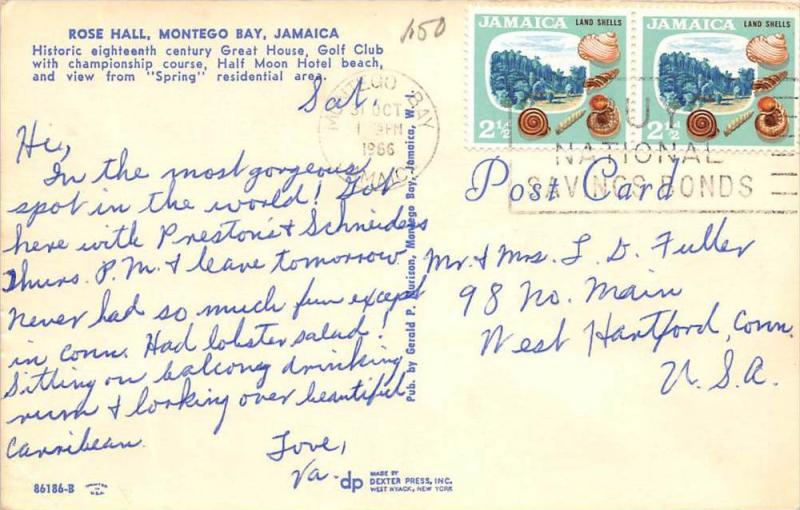 ROSE HALL, MONTEGO BAY, JAMAICA
Historic eighteenth century Great House, Golf Club
with championship course, Half Moon Hotel beach,
and view from "Spring" residential area.
150
Sat.
Hi,
In the most gorgeous
spot in the world! Got
here with Preston's & Schneiders
Thurs. P.M. & leave tomorrow
Never had so much fun except
in Conn. Had lobster salad!
Sitting on balcony drinking
rum & looking over beautiful
Carribean.
Love,
Va.
86186-B
dp
MADE BY
DEXTER PRESS, INC.
WEST NYACK, NEW YORK
Montego Bay, Jamaica, W.I.
MONTEGO BAY
31 OCT
1966
JAMAICA
JAMAICA LAND SHELLS
2½
JAMAICA LAND SHELLS
2½
BUY
NATIONAL
SAVINGS BONDS
Post Card
Mr. & Mrs. L. D. Fuller
98 No. Main
West Hartford, Conn.
U.S.A.